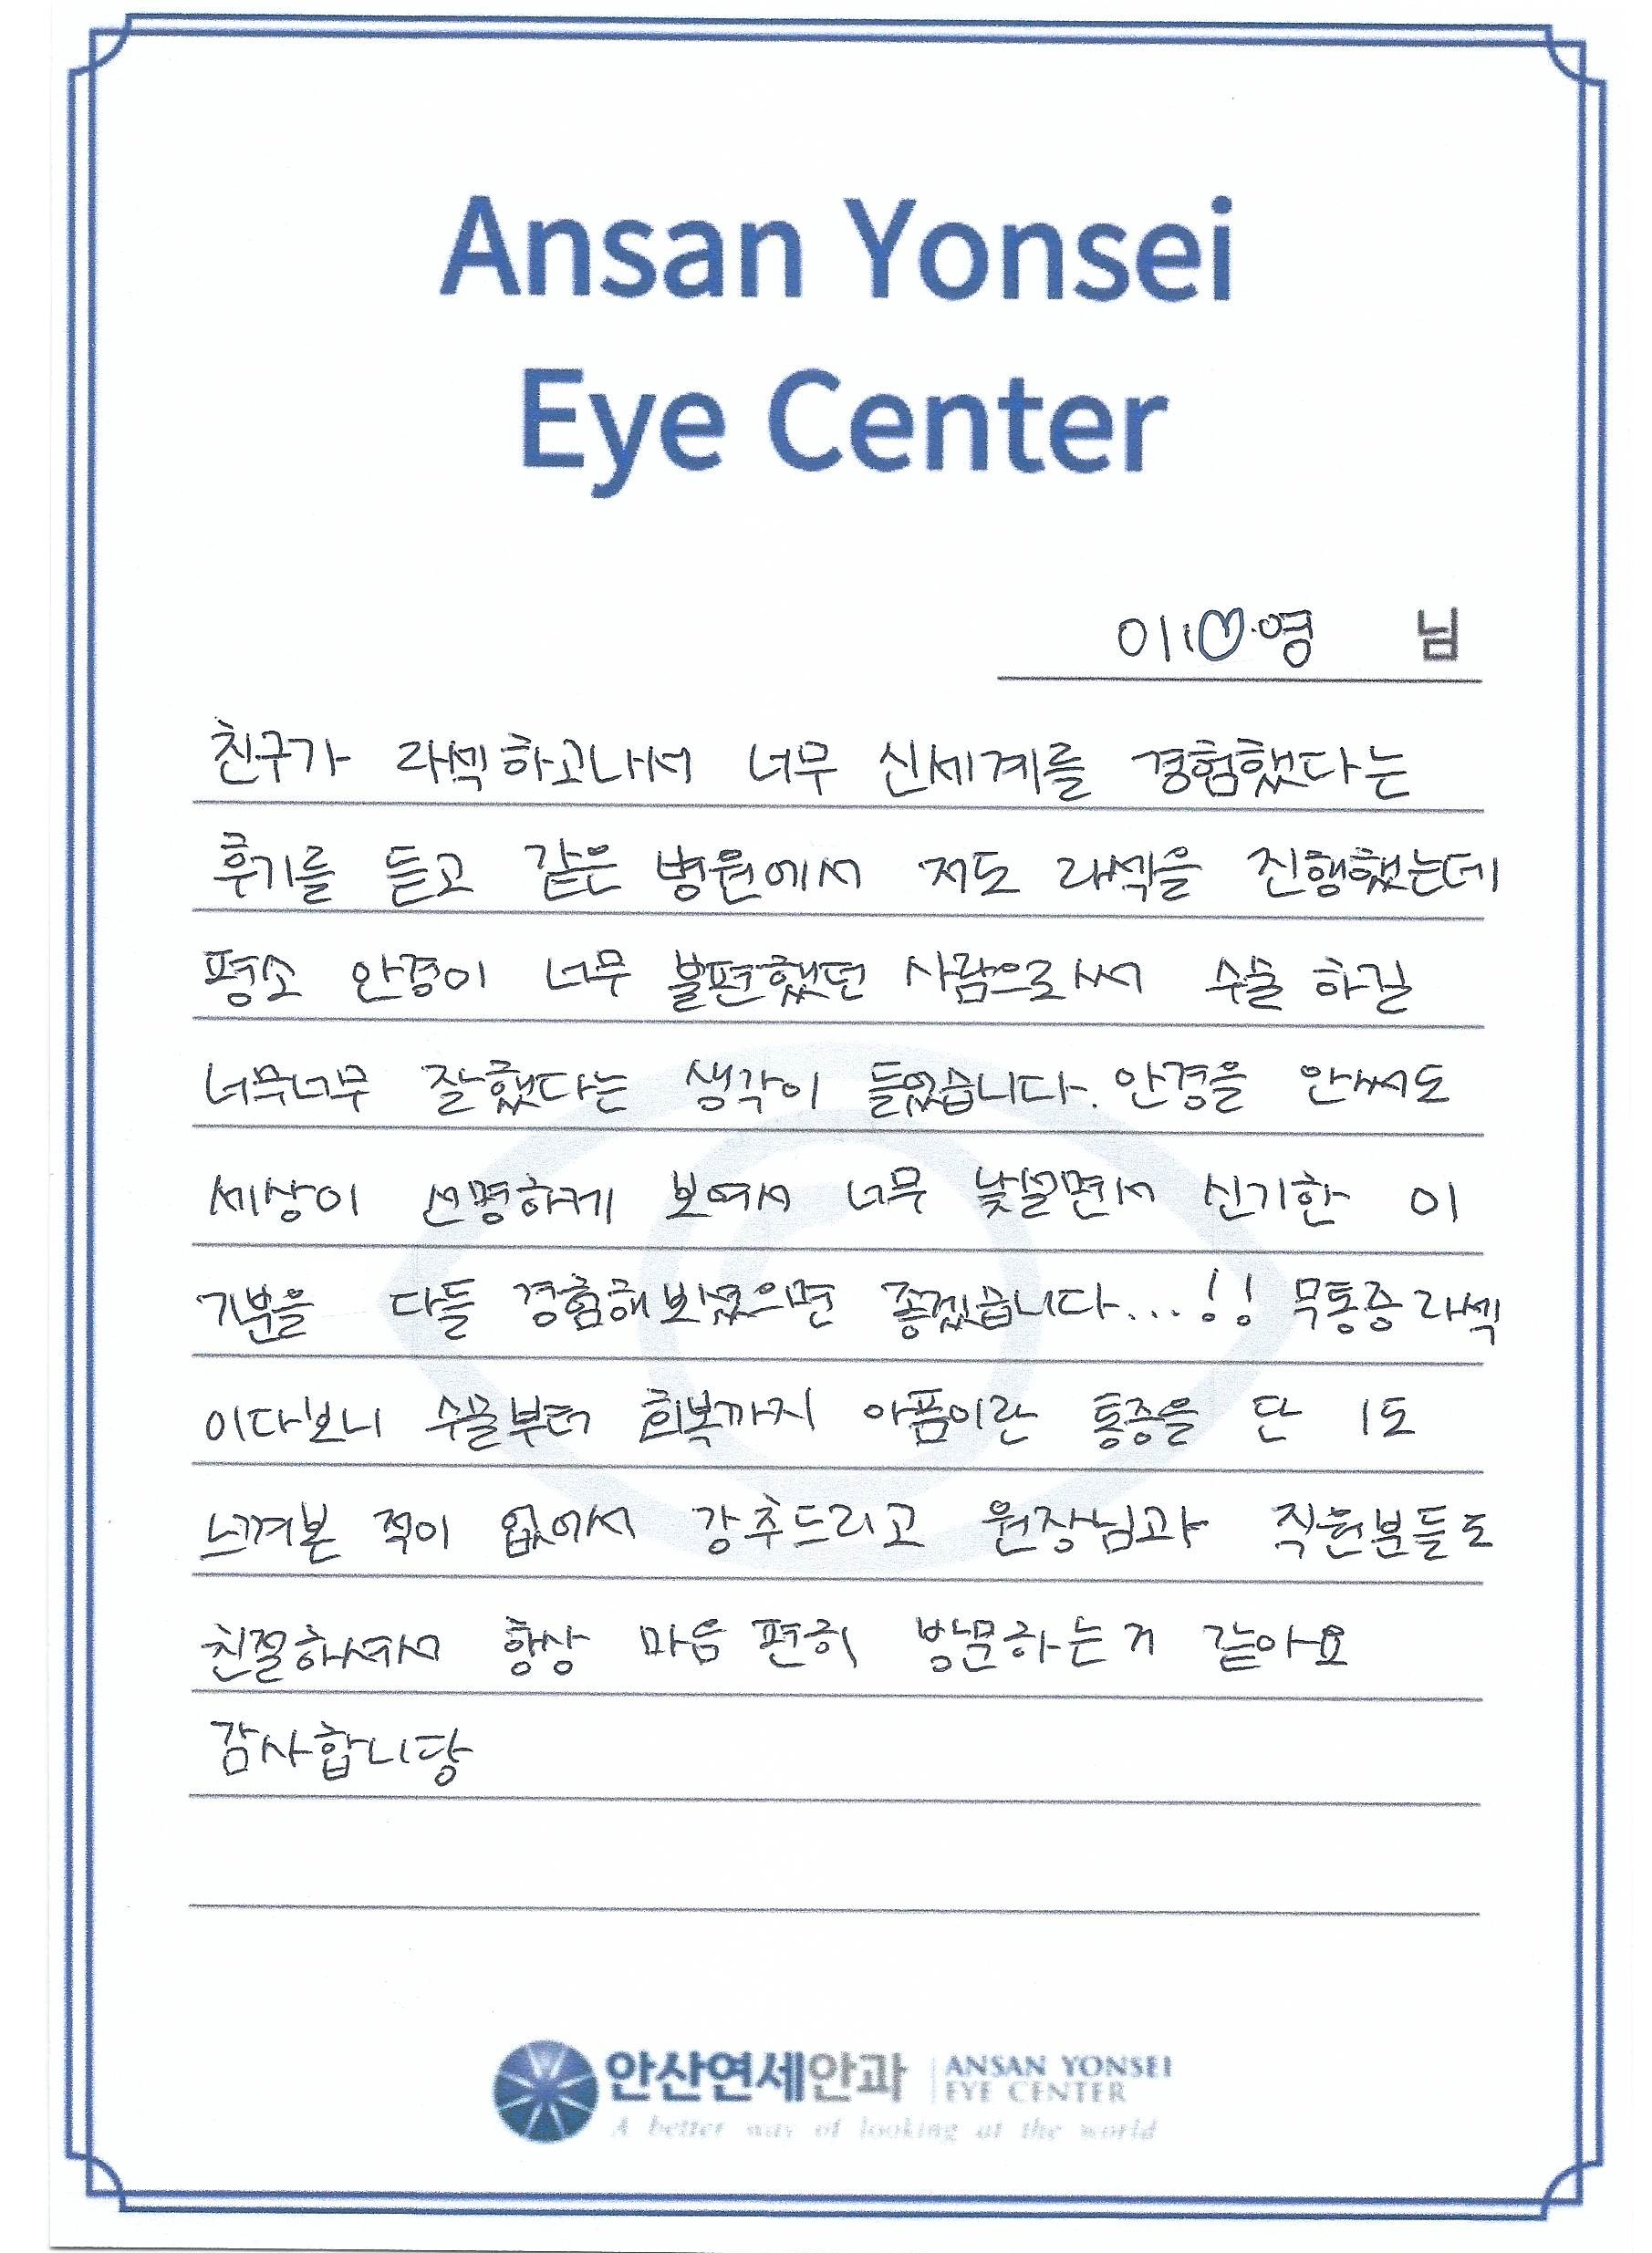 Ansan Yonsei
Eye Center
이♡영 님
친구가 라섹하고나서 너무 신세계를 경험했다는
후기를 듣고 같은 병원에서 저도 라섹을 진행했는데
평소 안경이 너무 불편했던 사람으로써 수술 하길
너무너무 잘했다는 생각이 들었습니다. 안경을 안써도
세상이 선명하게 보여서 너무 낯설면서 신기한 이
기분을 다들 경험해보셨으면 좋겠습니다...!! 무통증라섹
이다보니 수술부터 회복까지 아픔이란 통증을 단 1도
느껴본 적이 없어서 강추드리고 원장님과 직원분들도
친절하셔서 항상 마음 편히 방문하는거 같아요
감사합니당
안산연세안과 ANSAN YONSEI
EYE CENTER
A better way of looking at the world